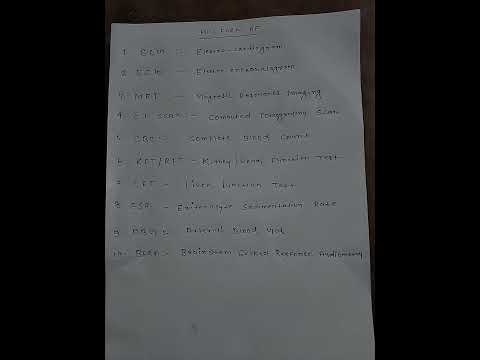 FULL FORM OF
1. ECG :- Electro-cardiogram
2. EEG :- Electro encephalogram
3. MRI :- Magnetic Resonance Imaging
4. CT SCAN :- Computed Tomography Scan
5. CBC :- Complete Blood Count
6. KFT/RFT - Kidney/Renal Function Test
7. LFT :- Liver function Test
8. ESR :- Sedimentation Rate
9. Blood
10. BERA :- Evoked Response Audiometry